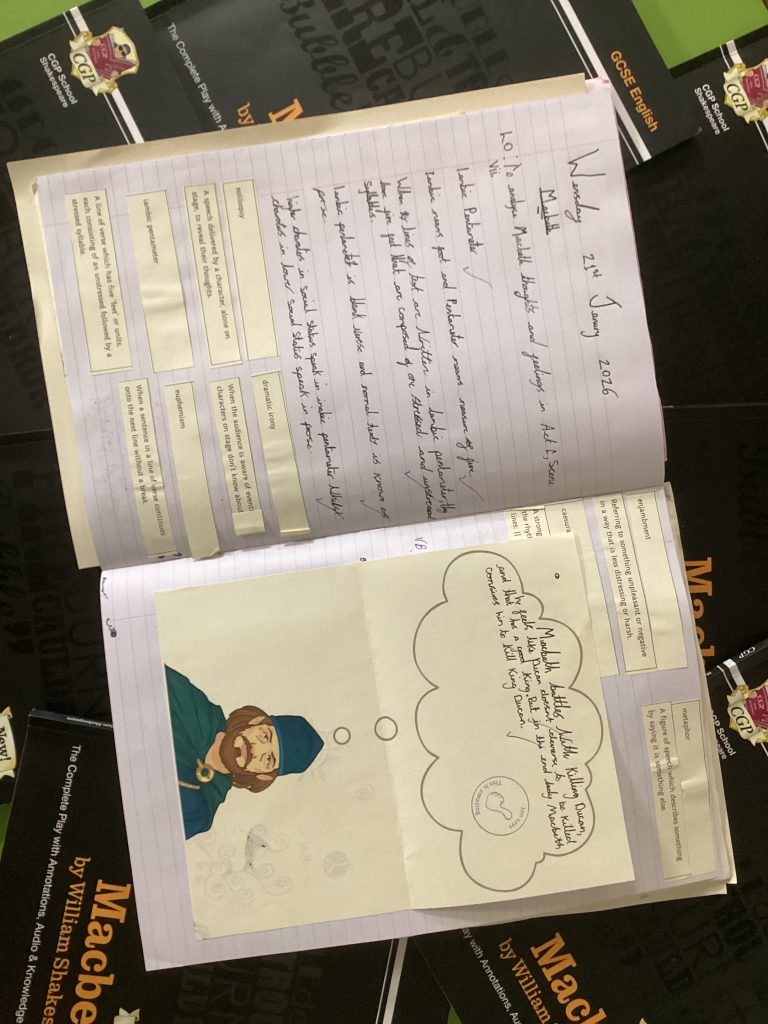 Wensday 21st Janury 2026
Macbeth
LO: To analyse Macbeth thoughts and feelings in Act 1, Scene
VII.
Iambic Pentameter
Iambic means foot and Pentameter means measure of five
When lines of text are Written in Iambic pentameter, they
have five feet that are composed of one stressed and unstressed
syllables.
Iambic pentameter is blank verse and normal text is known as
prose.
higher charaters in social status speak in pentameter Whilst
charaters in lower social status speak in prose.
soliloquy
A speech delivered by a character, alone on
stage, to reveal their thoughts.
iambic pentameter
A line of verse which has five 'feet' or units,
each consisting of an unstressed followed by a
stressed syllable.
dramatic irony
When the audience is aware of event
characters on stage don't know about
euphemism
When a sentence in a line of verse continues
onto the next line without a break.
enjambment
Referring to something unpleasant or negative
in a way that is less distressing or harsh.
caesura
A strong
the rhyt
line. It
metaphor
A figure of speech which describes something
by saying it is something else.
VB
Macbeth battles With Killing Ducan,
he feels like Ducan doesn't deserve to be killed
and that he has a good King. But in the end lady Macbeth
convinves him to Kill King Ducan.
This is amazing
CGP School
Shakespeare
CGP
The Complete Play with A
M
by
GCSE English
CGP School
Shakespeare
CGP
Ma
CGP School
Shakespeare
CGP
New!
The Complete Play with Annotations, Audio & Knowledge
Macbe
by William Shakes
ay with Annotations, Au
Mac
by William S